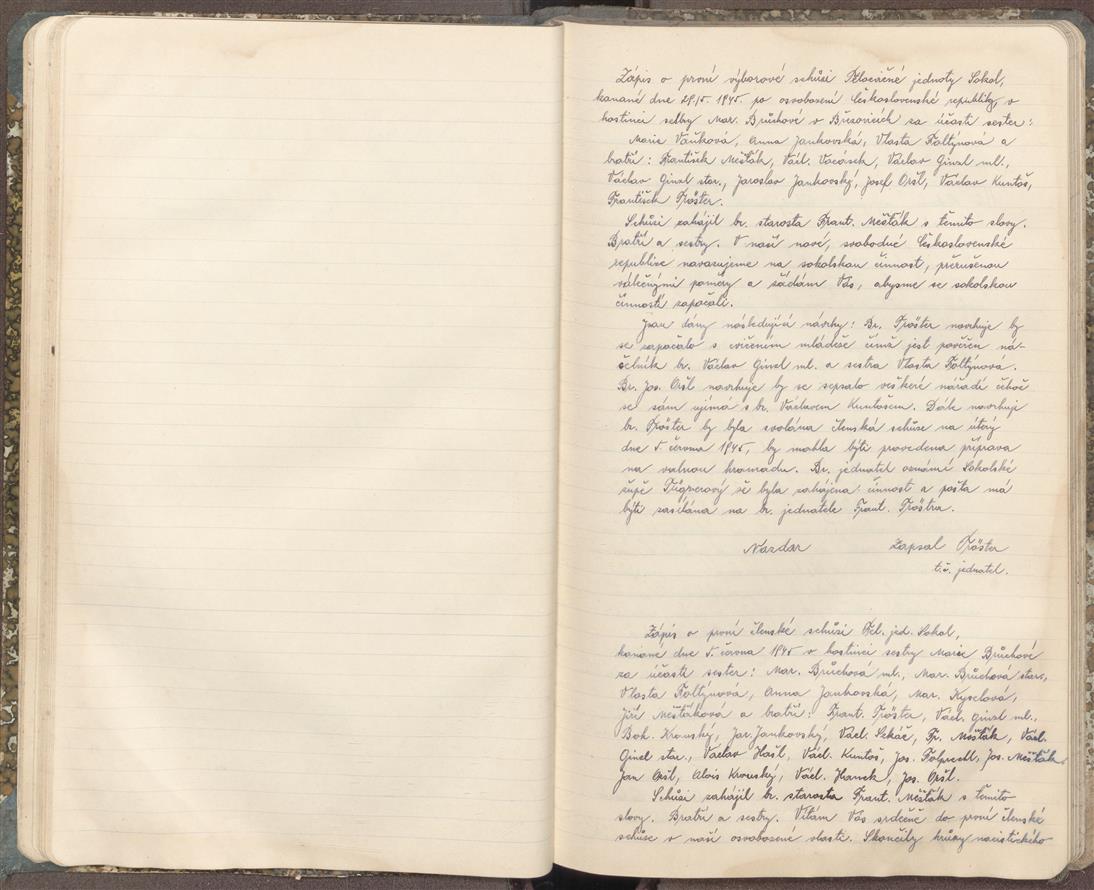 Zápis o první výborové schůzi Tělocvičné jednoty Sokol,
konané dne 29./5. 1945. po osvobození Československé republiky, v
hostinci sestry Mar. Brůchové v Březovicích za účasti sester:
Marie Vaňková, Anna Jankovská, Vlasta Foltýnová a
bratří: František Mešťák, Václ. Vocásek, Václav Ginzl ml.,
Václav Ginzl star., Jaroslav Jankovský, Josef Oršl, Václav Kuntoš,
František Tröster.
Schůzi zahájil br. starosta Frant. Mešťák s těmito slovy.
Bratři a sestry. V naší nové, svobodné Československé
republice navazujeme na sokolskou činnost, přerušenou
válečnými poměry a žádám Vás, abysme se sokolskou
činností započali.
Jsou dány následující návrhy: Br. Tröster navrhuje by
se započalo s cvičením mládeže čímž jest pověřen ná-
čelník br. Václav Ginzl ml. a sestra Vlasta Foltýnová.
Br. Jos. Oršl navrhuje by se sepsalo veškeré nářadí čehož
se sám ujímá s br. Václavem Kuntošem. Dále navrhuje
br. Tröster by byla svolána členská schůze na úterý
dne 5. června 1945, by mohla býti provedena příprava
na valnou hromadu. Br. jednatel oznámí Sokolské
župě Fügnerovy že byla zahájena činnost a pošta má
býti zasílána na br. jednatele Frant. Tröstra.
Nazdar Zapsal Tröster
t.č. jednatel.
Zápis o první členské schůzi Těl. jed. Sokol,
konané dne 5. června 1945 v hostinci sestry Marie Brůchové
za účasti sester: Mar. Brůchová ml., Mar. Brůchová star.,
Vlasta Foltýnová, Anna Jankovská, Mar. Kyselová,
Jiří Mešťáková a bratří: Frant. Tröster, Václ. Ginzl ml.,
Boh. Krouský, Jar. Jankovský, Václ. Sekáč, Fr. Mešťák, Václ.
Ginzl star., Václav Hašl, Václ. Kuntoš, Jos. Folprecht, Jos. Mešťák,
Jan Oršl, Alois Krouský, Václ. Hanek, Jos. Oršl.
Schůzi zahájil br. starosta Frant. Mešťák s těmito
slovy. Bratři a sestry. Vítám Vás srdečně do první členské
schůze v naší osvobozené vlasti. Skončily hrůzy nacistického